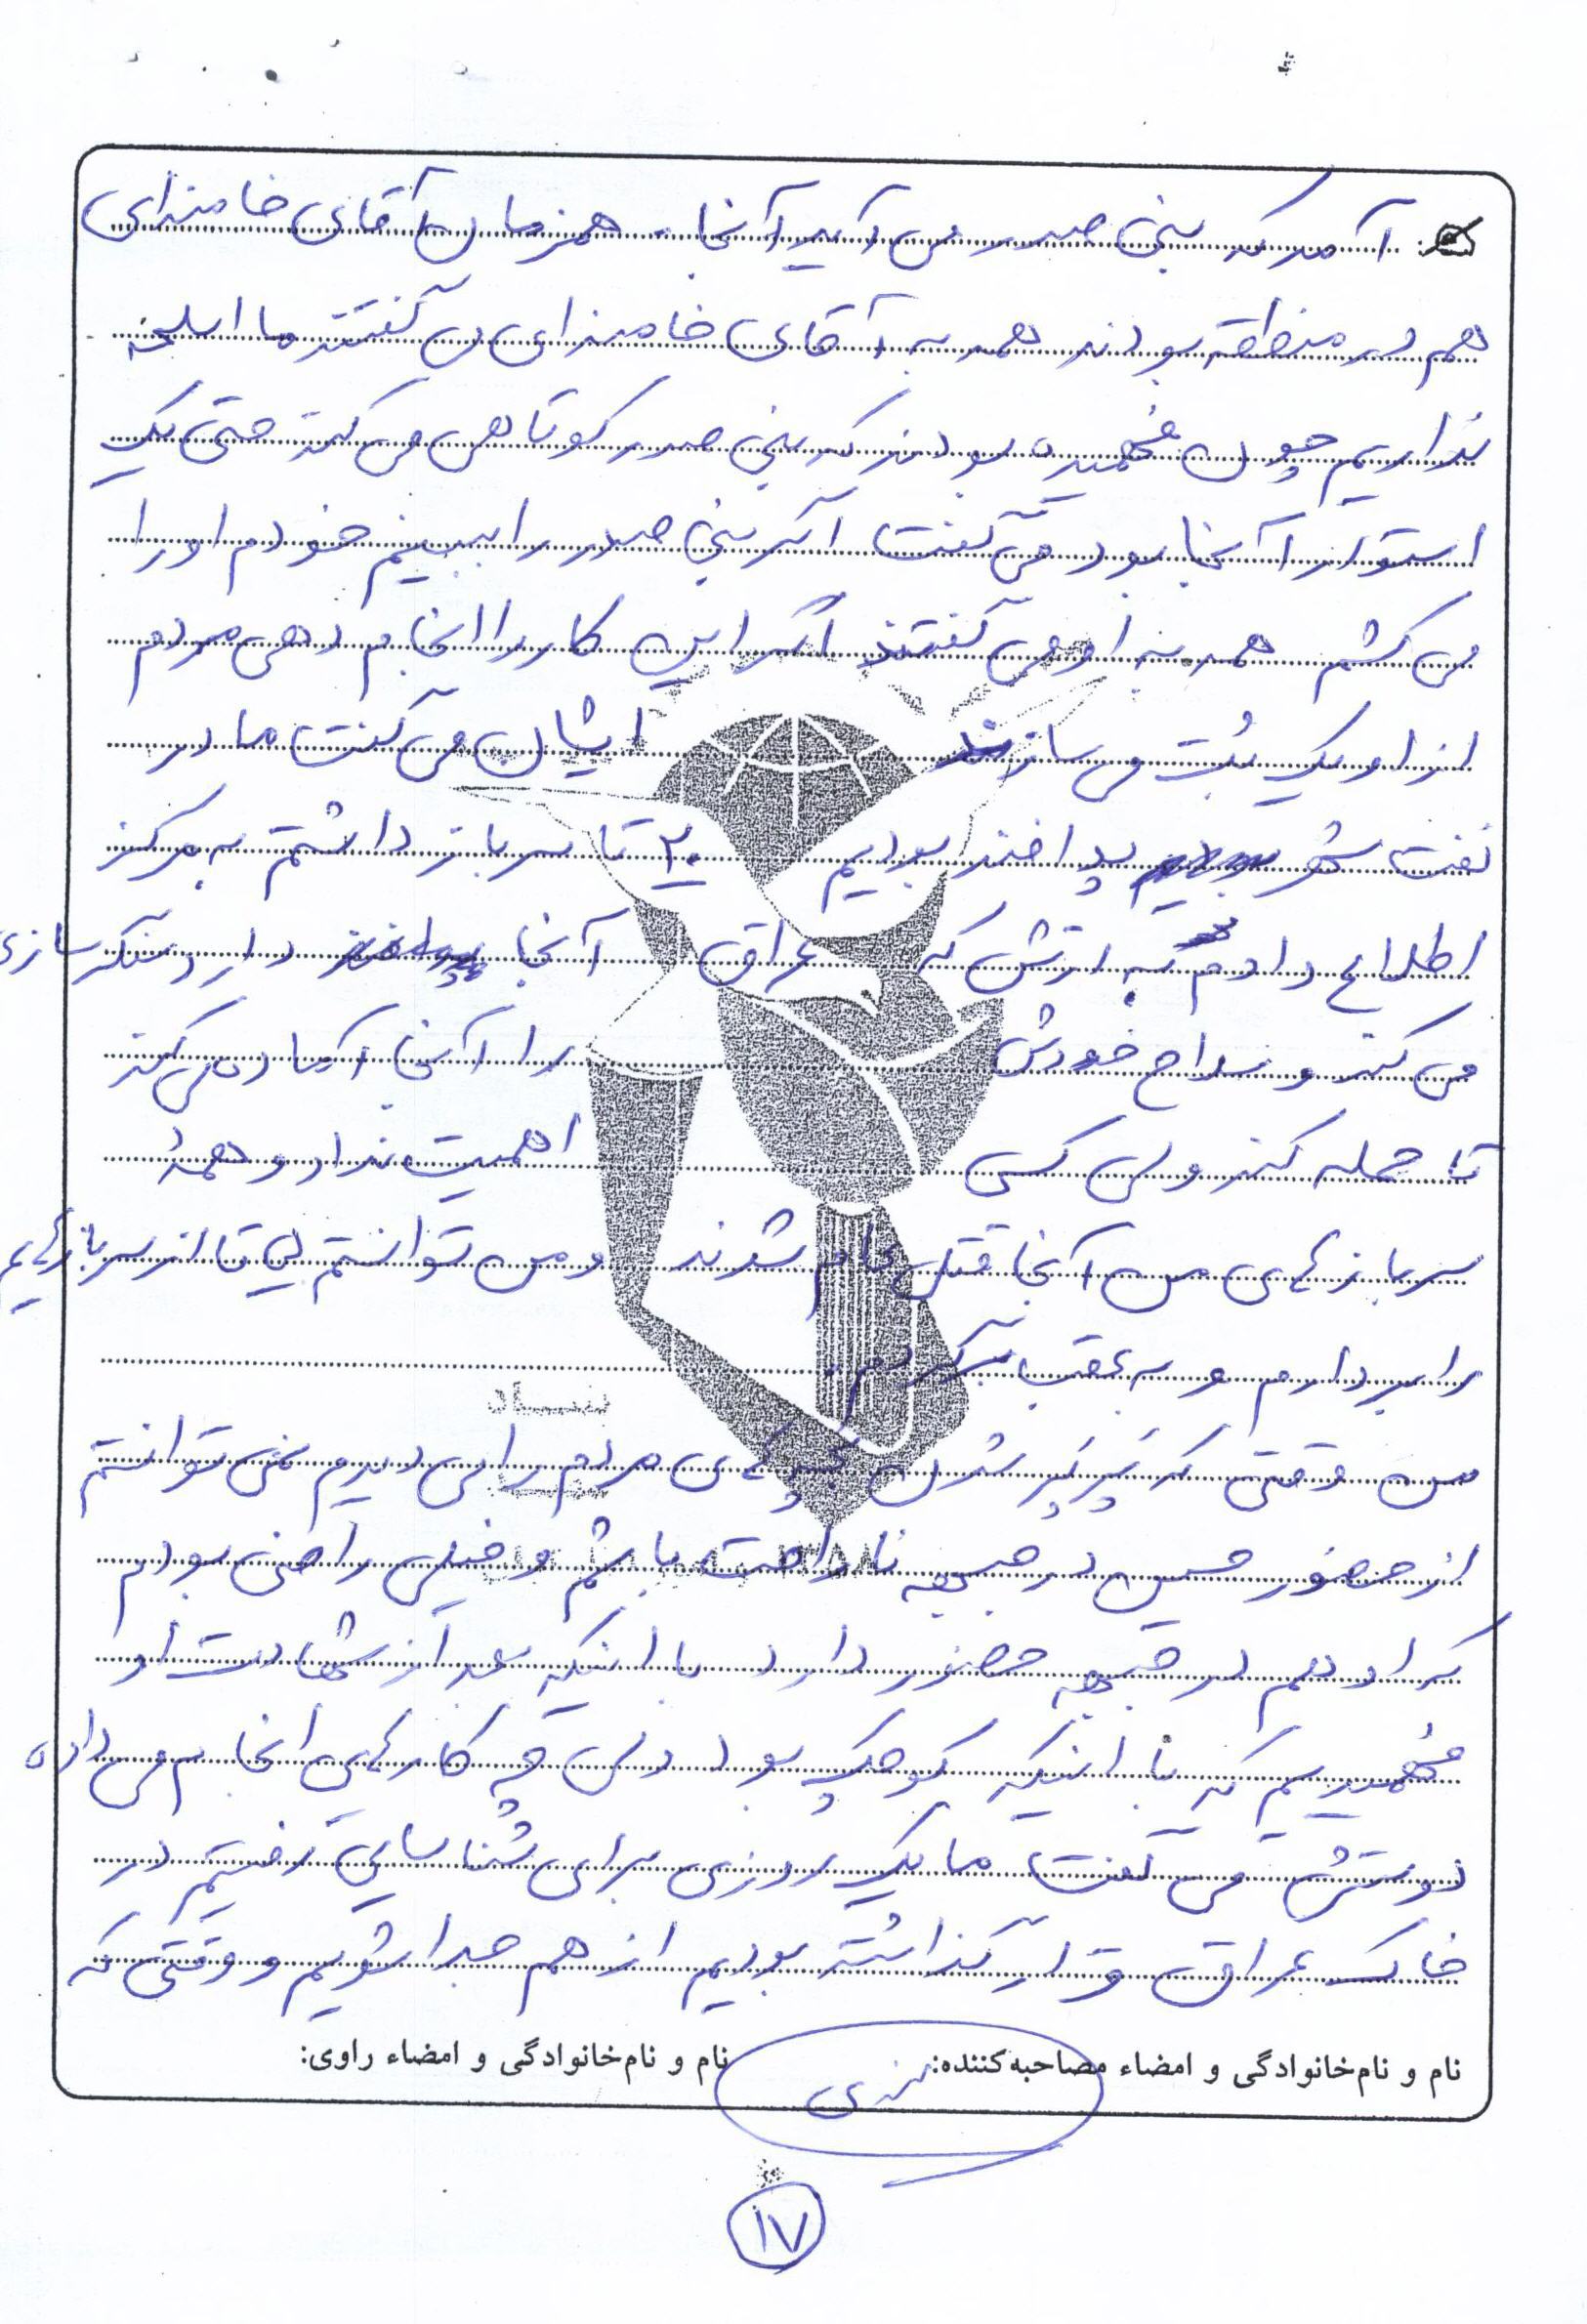 آمد که بنی صدر می آید آنجا. همزمان آقای خامنه‌ای
هم در منطقه بودند همه به آقای خامنه‌ای می گفتند ما اسلحه
نداریم چون فهمیده بودند که بنی صدر کوتاهی می کند حتی یک
استوار آنجا بود می گفت اگر بنی صدر را ببینم خودم او را
می کشم همه به او می گفتند اگر این کار را انجام دهی مردم
از او یک بُت می سازند ایشان می گفت ما در
نفت شهر پدافند بودیم ۲۰ تا سرباز داشتم به مرکز
اطلاع دادم به ارتش که عراق آنجا دارد سنگر سازی
می کند و سلاح خودش را آنجا آماده می کند
تا حمله کند ولی کسی اهمیت نداد و همهٔ
سربازهای من آنجا قتل عام شدند و من توانستم تا از سربازهایم
را بردارم و به عقب برگردم.
من وقتی که پرپر شدن بچه های مردم را می دیدم نمی توانستم
از حضور حسین در جبهه ناراحت باشم و خیلی راضی بودم
که او هم در جبهه حضور دارد با اینکه بعد از شهادت او
فهمیدیم که با اینکه کوچک بود ولی چه کارهایی انجام می داده
دوستش می گفت ما یک روزی برای شناسایی رفتیم در
خاک عراق قرار گذاشته بودیم از هم جدا شویم و وقتی که
نام و نام‌خانوادگی و امضاء مصاحبه‌کننده: نام و نام‌خانوادگی و امضاء راوی:
۱۷